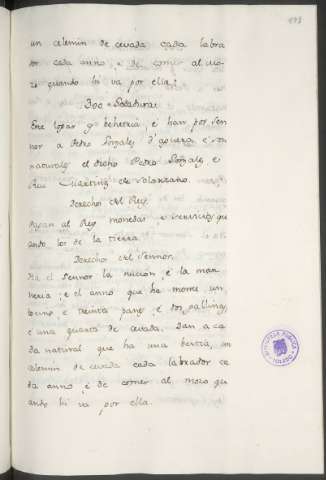 193
un celemin de cevada cada labra
dor cada anno, e de comer al mo-
zo quando hi va por ella.
Este logar es behetria, e han por Sen
nor a Pedro Gonzales d'Aguero, e son
naturales el dicho Pedro Gonzales e
Rui Martinez de Solorzano.
Derechos del Rey.
Pagan al Rey monedas e servicios qu
ando los de la tierra.
Derechos del Sennor.
Ha el Sennor la nucion, e la man
neria, e el anno que ha monte un
tocino, e treinta panes, e dos gallinas,
e una quarta de cevada. Dan a ca
da natural que ha una behetria, un
celemin de cevada cada labrador ca
da anno, e de comer al mozo qu
ando hi va por ella.
BIBLIOTECA PUBLICA
TOLEDO